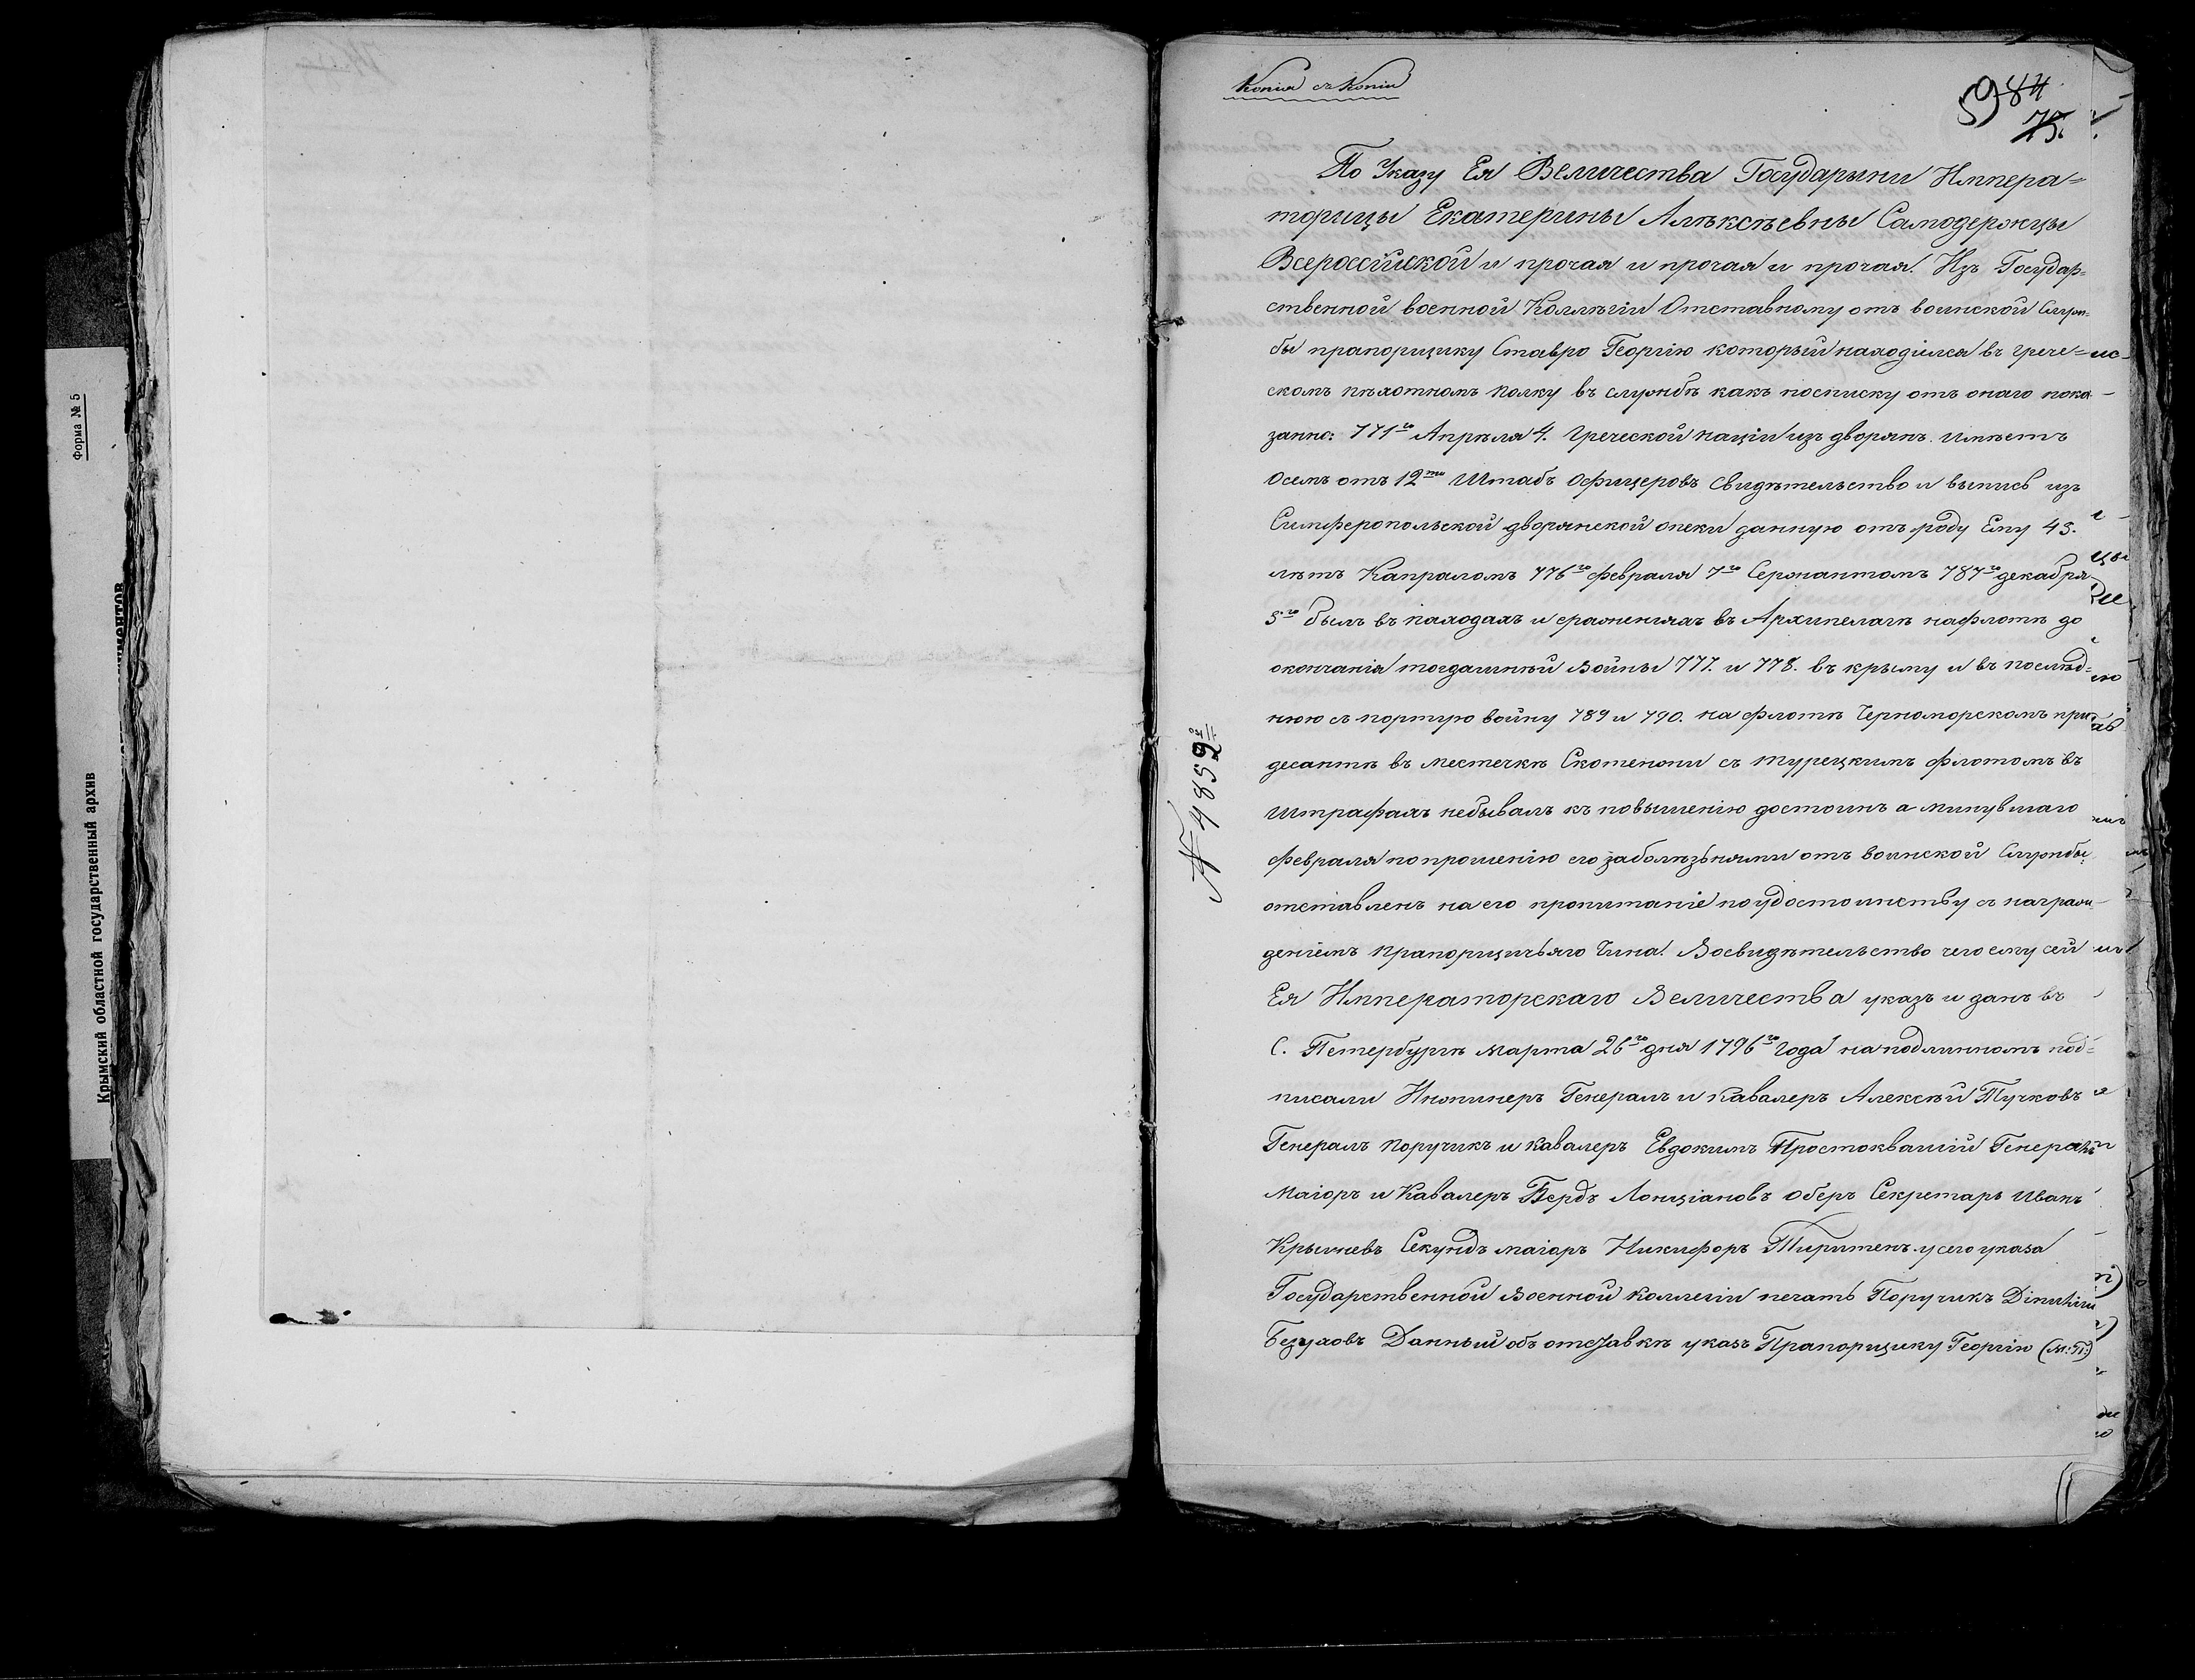 Форма № 5
Крымский областной государственный архив
Копія съ Копіи
59 84
75.
По Указу Ея Величества Государыни Импера=
торицы Екатерины Алѣксѣевны Самодержцы
Всероссійской и прочая и прочая и прочая. Изъ Государ=
ственной военной Коллѣгіи Отставному отъ воинской Служ=
бы прапорщику Ставро Георгію который находился въ грече=
скомъ пѣхотномъ полку въ службѣ какъ посписку отъ онаго пока
занно: 771го Апрѣля 4. Греческой націи изъ дворянъ. имѣетъ
Осемъ отъ 12ти Штабъ Офицеровъ Свидѣтельство и выпись изъ
Симферопольской дворянской опеки данную отъ роду Ему 43.
лѣтъ Капраломъ 776го февраля 7го Сержантомъ 787го декабря
5го былъ въ походахъ и сраженіяхъ въ Архипелагѣ нафлотѣ до
окончанія тогдашнѣй Войны 777. и 778. въ крыму и въ послѣд=
нюю съ портую войну 789 и 790. на флотѣ Черноморскомъ при
десантѣ въ местечкѣ Скотенони съ турецкимъ флотомъ въ
Штрафахъ небывалъ къ повышенію достоинъ а минувшаго
февраля попрошенію его заболѣзьнями отъ воинской Службы
отставленъ на его пропитаніе поудостоинству съ награж
деніемъ прапорщичьяго Чина. Восвидѣтельство чего ему сей
Ея Императорскаго Величества указъ и данъ въ
С. Петербургѣ марта 26го дня 1796го года на подлинномъ под=
писали Инжинеръ Генералъ и Кавалеръ Алексѣй Тучковъ
Генералъ Поручикъ и Кавалеръ Евдокимъ Простоквашій Генералъ
Маіоръ и Кавалеръ Бердъ Лонціановъ Оберъ Секретарь Иванъ
Секундъ маіоръ Никифоръ у сего указа
Государственной Военной Коллегіи печать Поручикъ
Данный объ отставкѣ указъ Прапорщику Георгію (М:П:)
№ 4859